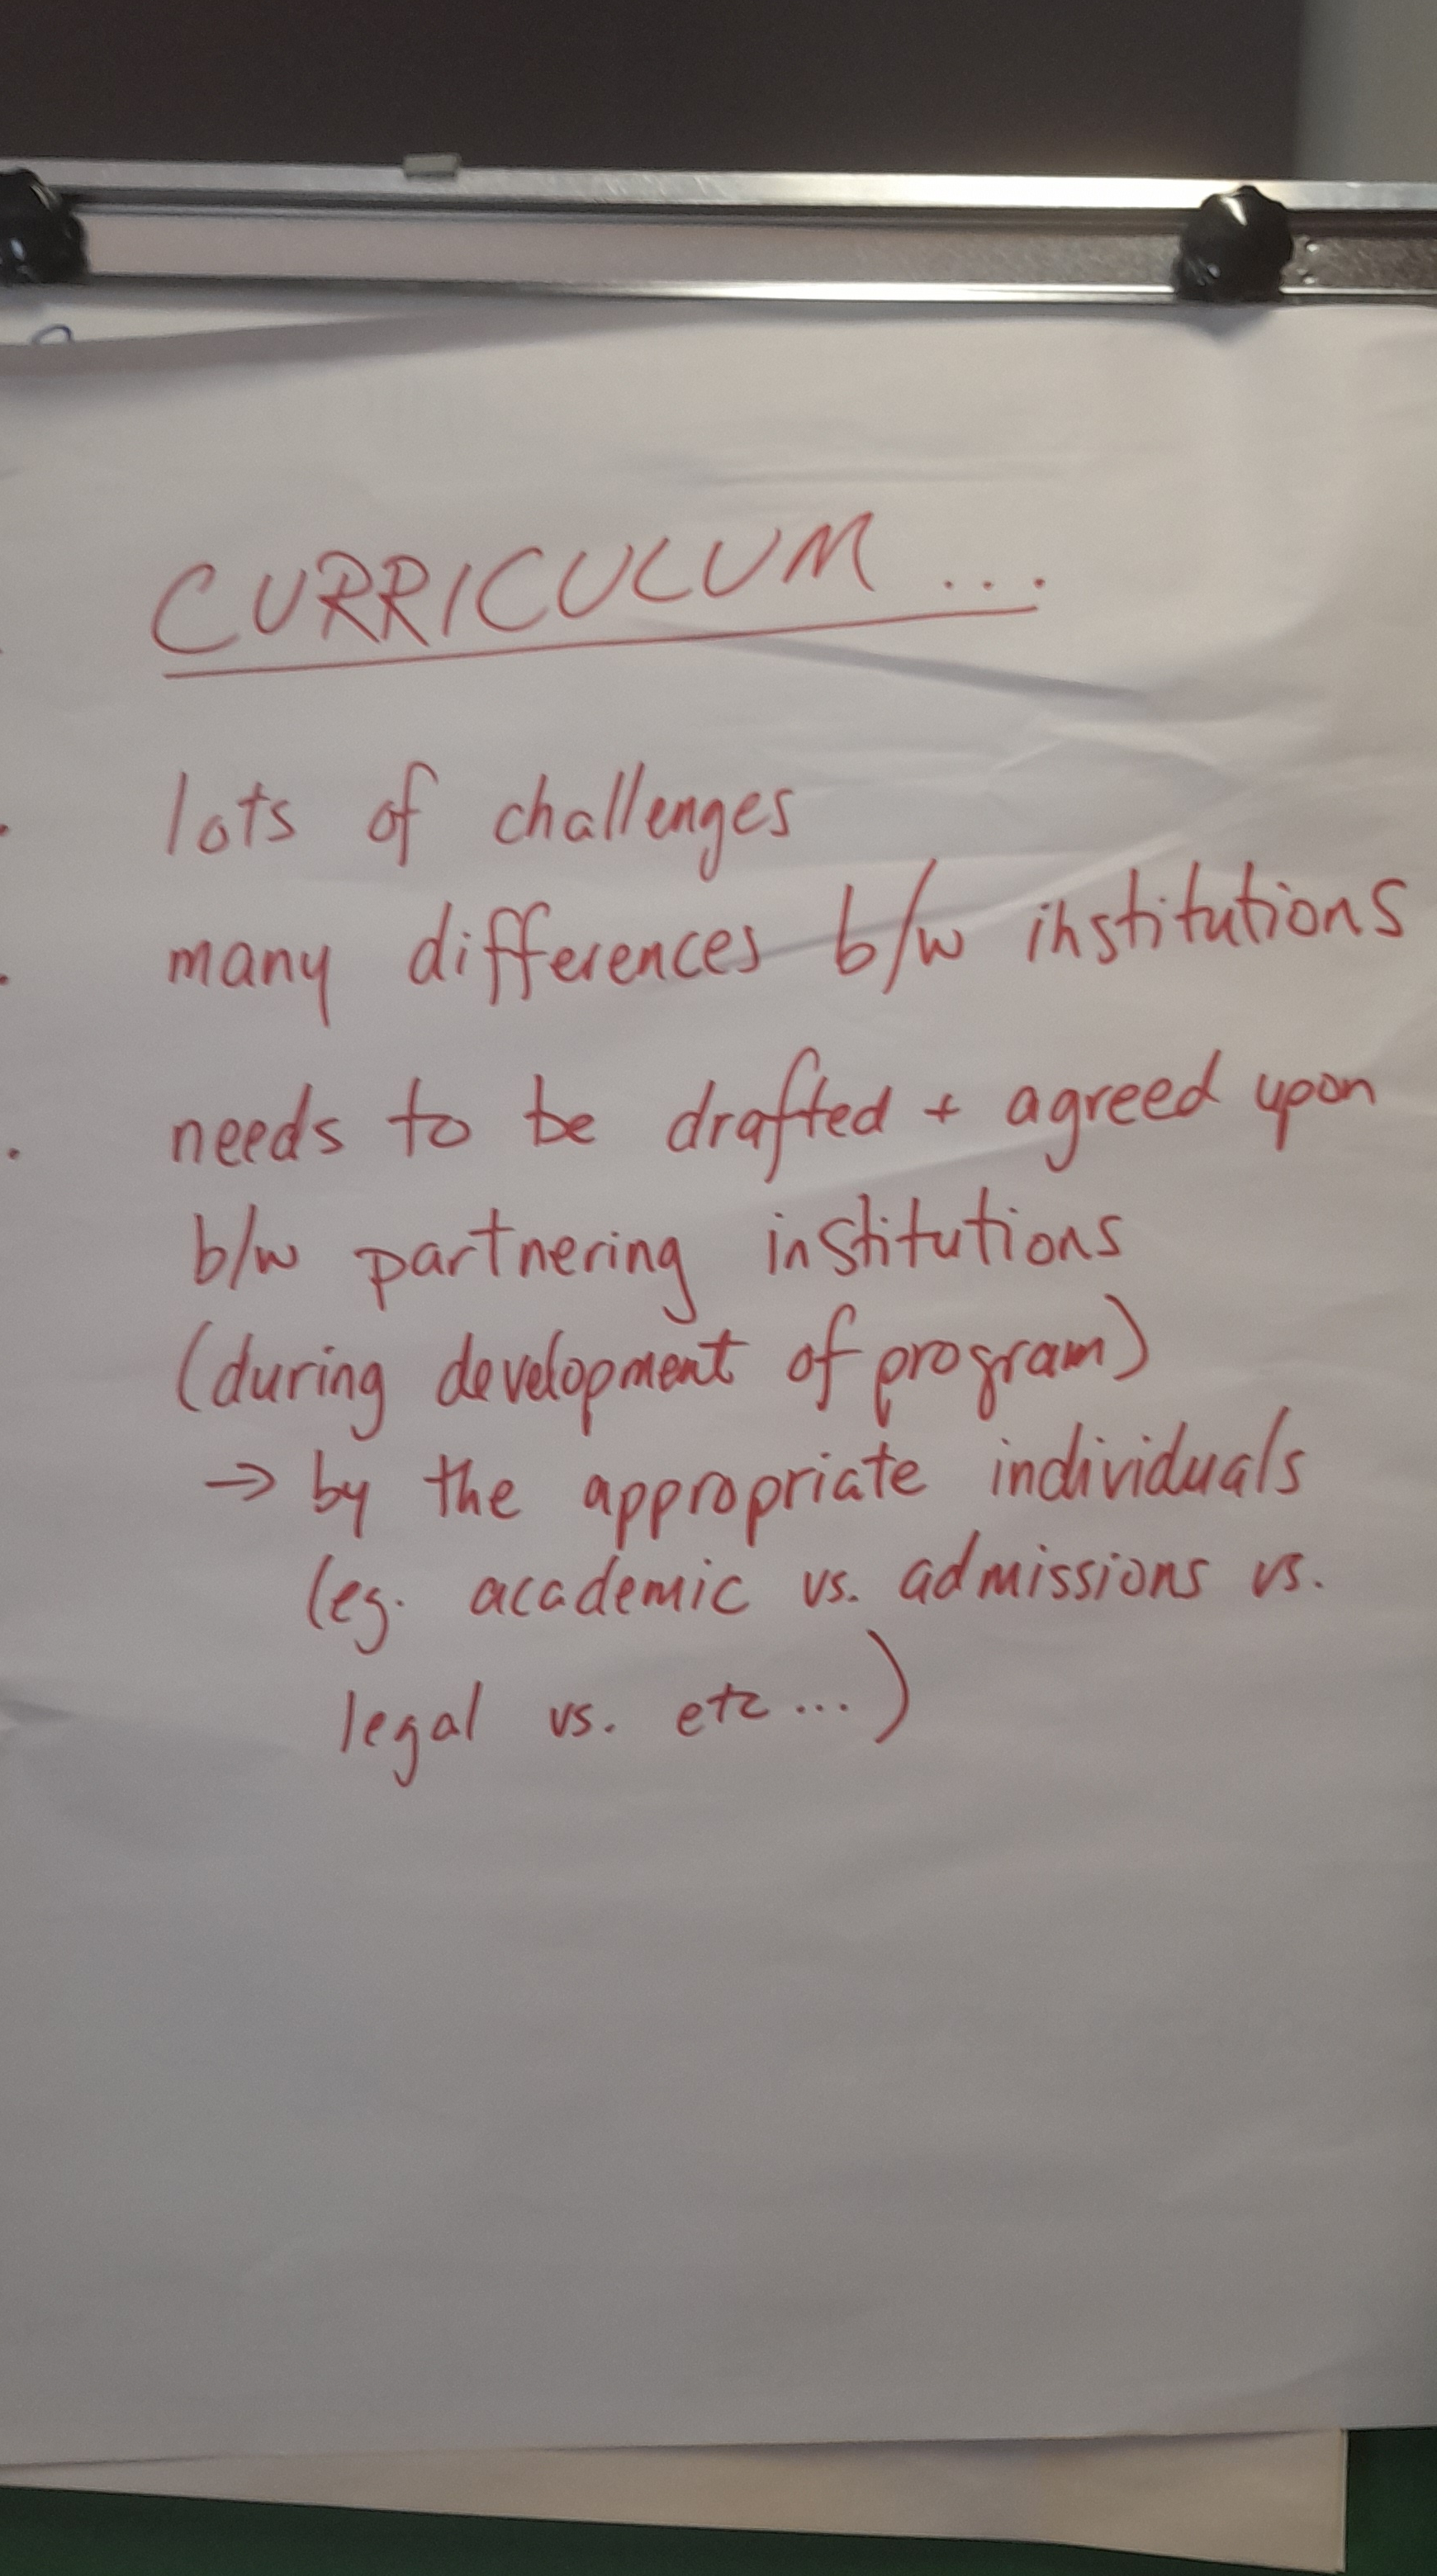 CURRICULUM ...
• lots of challenges
• many differences b/w institutions
• needs to be drafted + agreed upon
b/w partnering institutions
(during development of program)
→ by the appropriate individuals
(eg. academic vs. admissions vs.
legal vs. etc...)